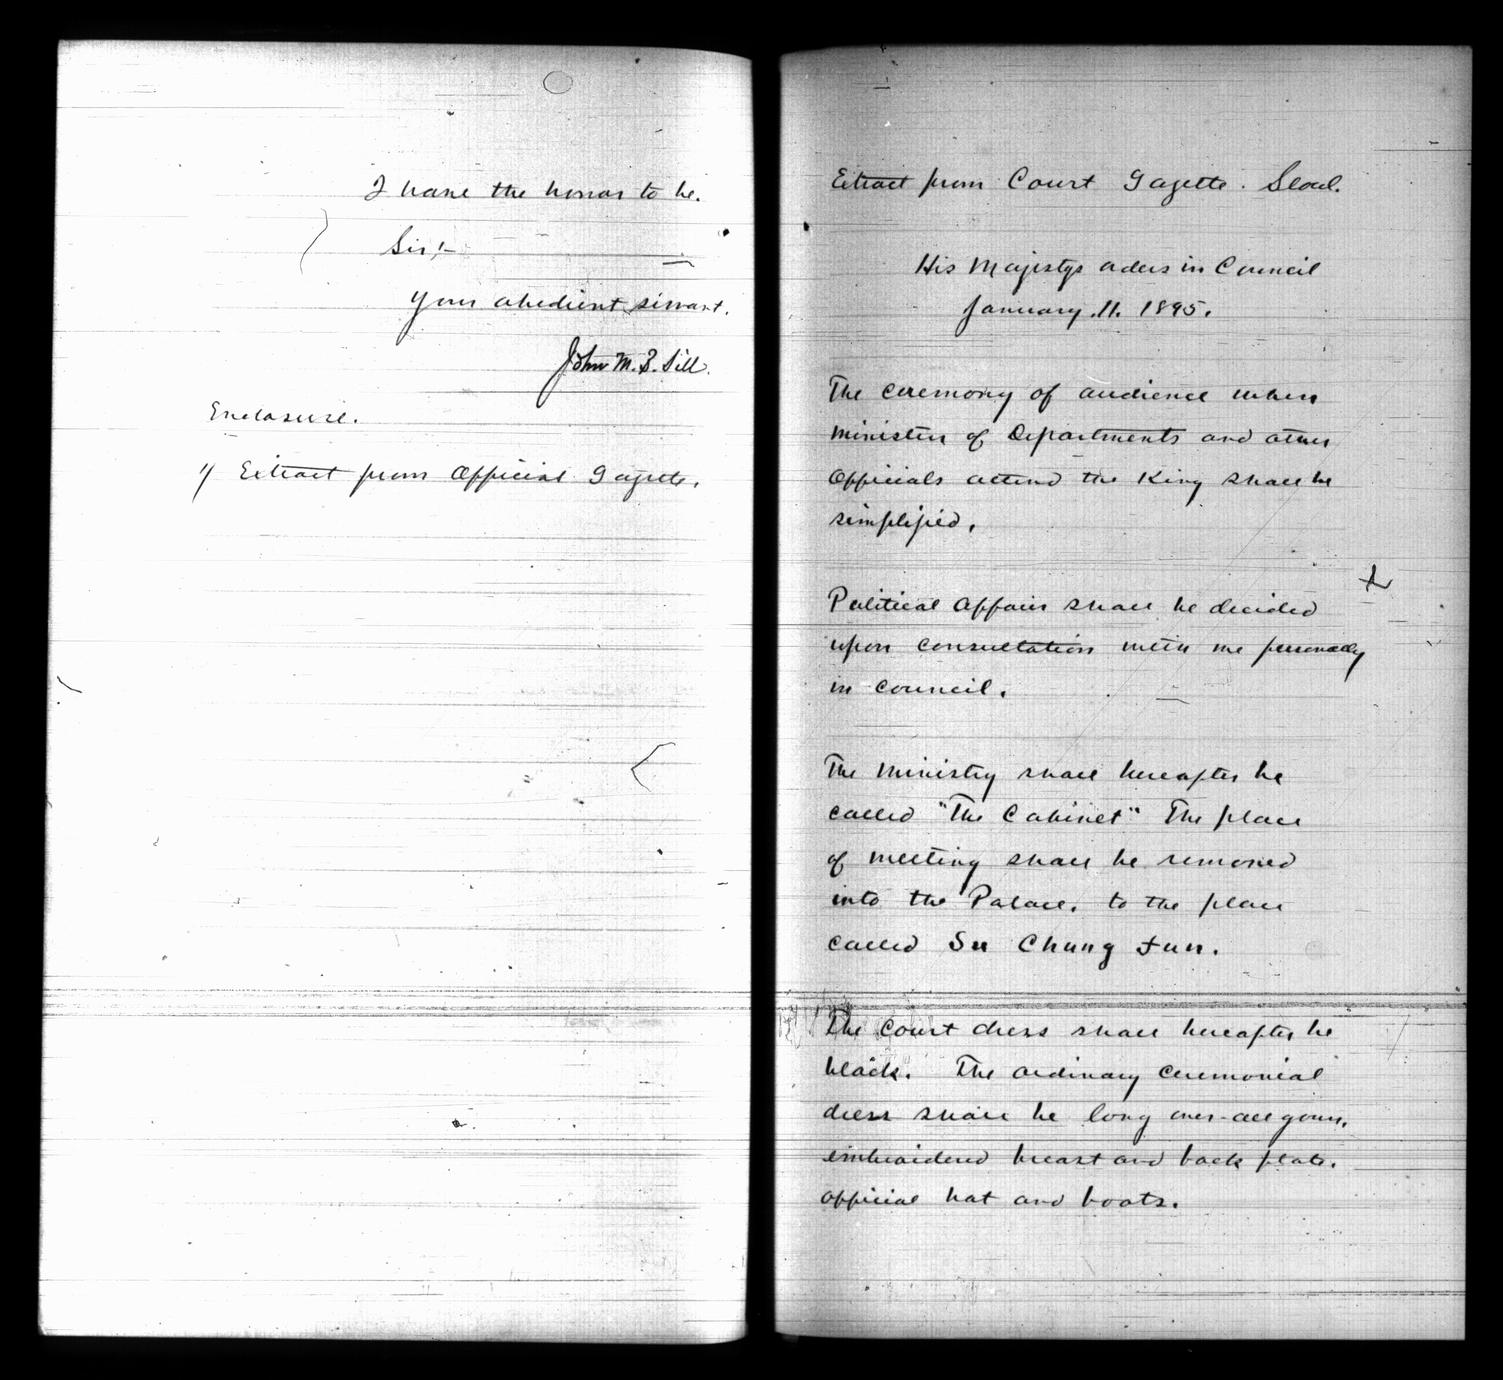 I have the honor to be.
Sir:-
Your obedient servant.
John M. B. Sill.
Enclosure.
1/ Extract from Official Gazette.
Extract from Court Gazette. Seoul.
His Majestys orders in Council
January. 11. 1895.
The ceremony of audience when
Ministers of Departments and other
Officials attend the King shall be
simplified.
Political Affairs shall be decided
upon consultation with me personally
in council.
The Ministry shall hereafter be
called "The Cabinet" The place
of meeting shall be removed
into the Palace, to the place
called Su Chung Jun.
The court dress shall hereafter be
black. The ordinary ceremonial
dress shall be long over-all gown,
embroidered breast and back plate.
official hat and boots.